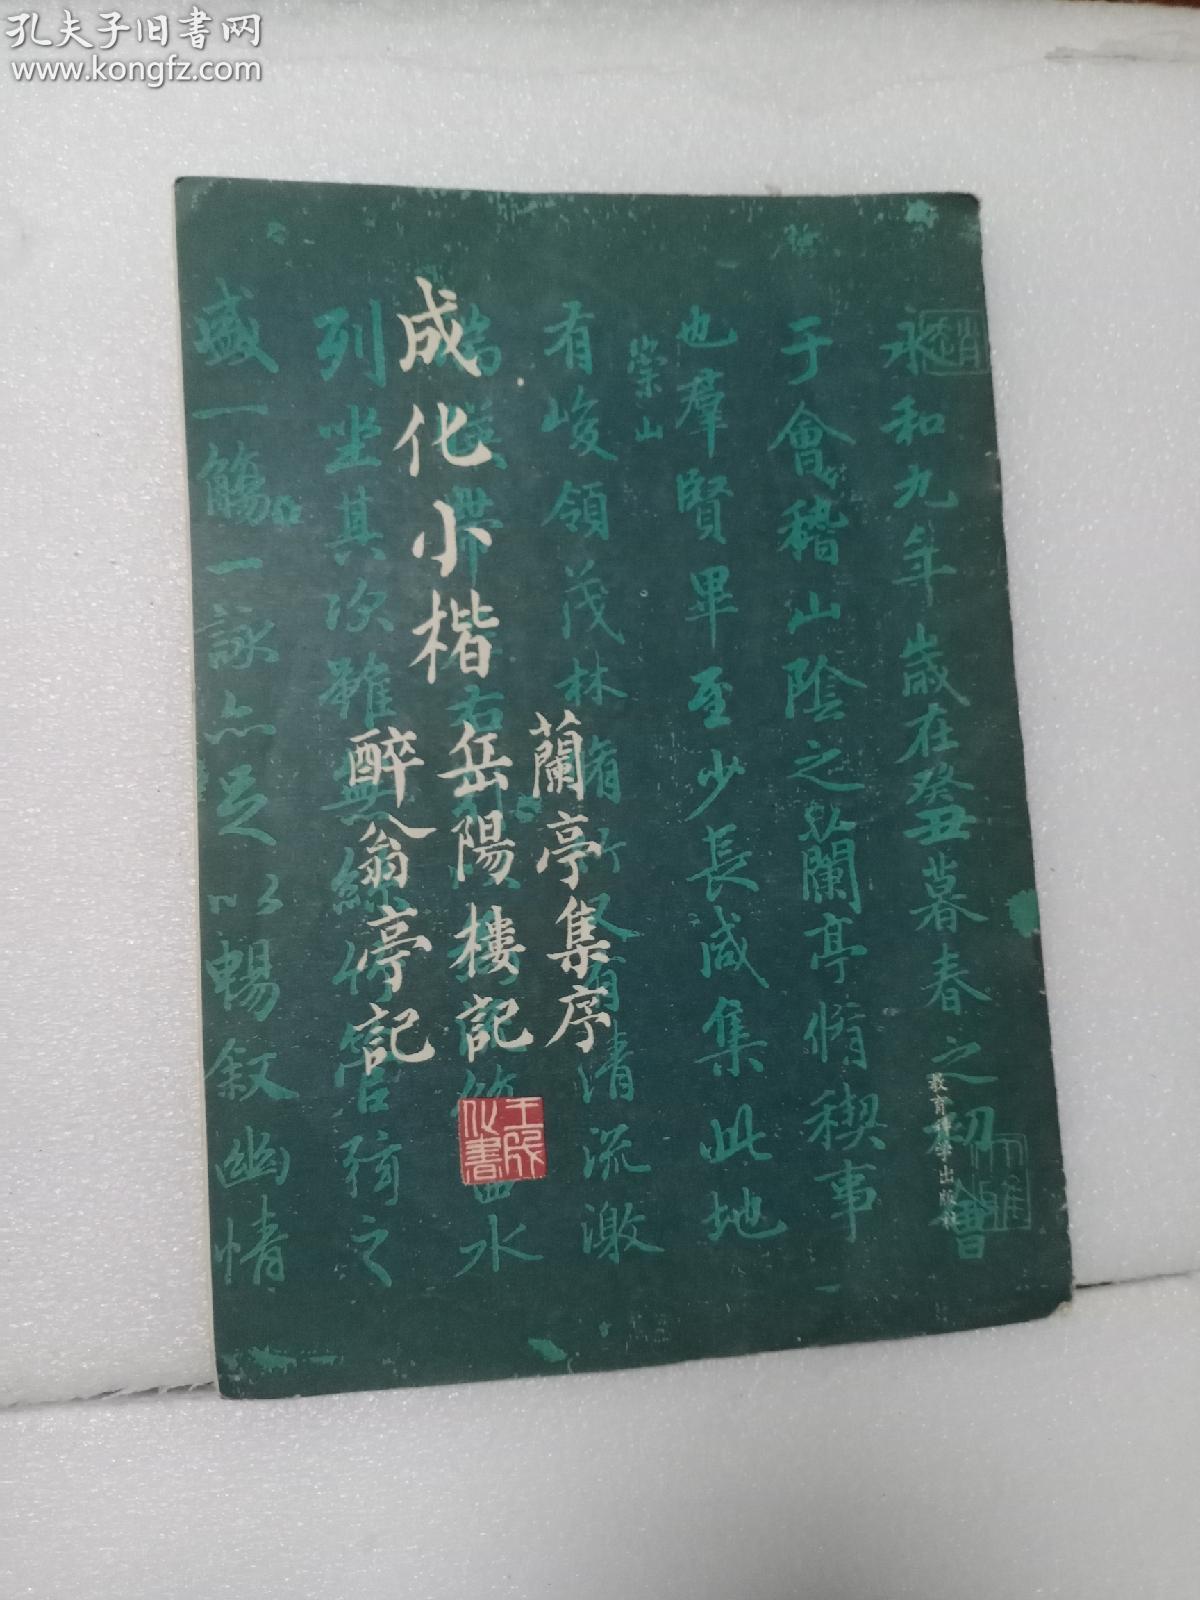 孔夫子旧書网
www.kongfz.com
成化小楷
蘭亭集序
岳陽樓記
醉翁亭記
王成化書
教育科學出版社
永和九年歲在癸丑暮春之初會
于會稽山陰之蘭亭脩稧事
也羣賢畢至少長咸集此地
有峻領茂林脩竹又有清流激
崇山
列坐其次雖無絲竹管弦之
盛一觴一詠亦足以暢叙幽情